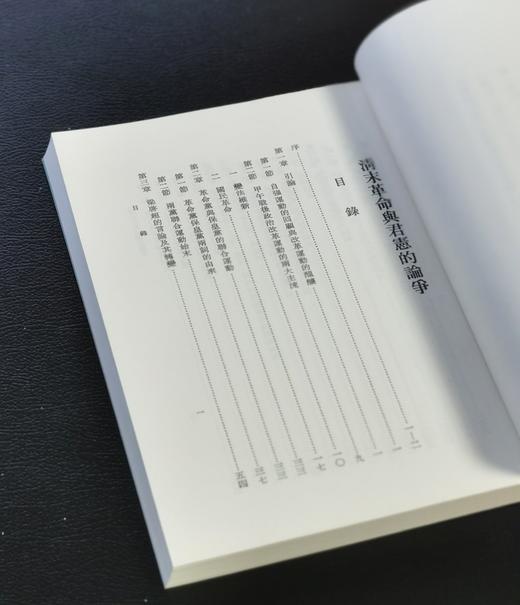 清末革命與君憲的論爭
目錄
序……一—二
第一章 引論……一
第一節 自強運動的回顧與改革運動的醞釀……一
第二節 甲午戰後政治改革運動的兩大主流……九
一 變法維新……一〇
二 國民革命……一七
第二章 革命黨與保皇黨的聯合運動……三三
第一節 革命黨與保皇黨兩詞的由來……三三
第二節 兩黨聯合運動始末……三七
第三章 梁啓超的言論及其轉變……五四
目錄 一